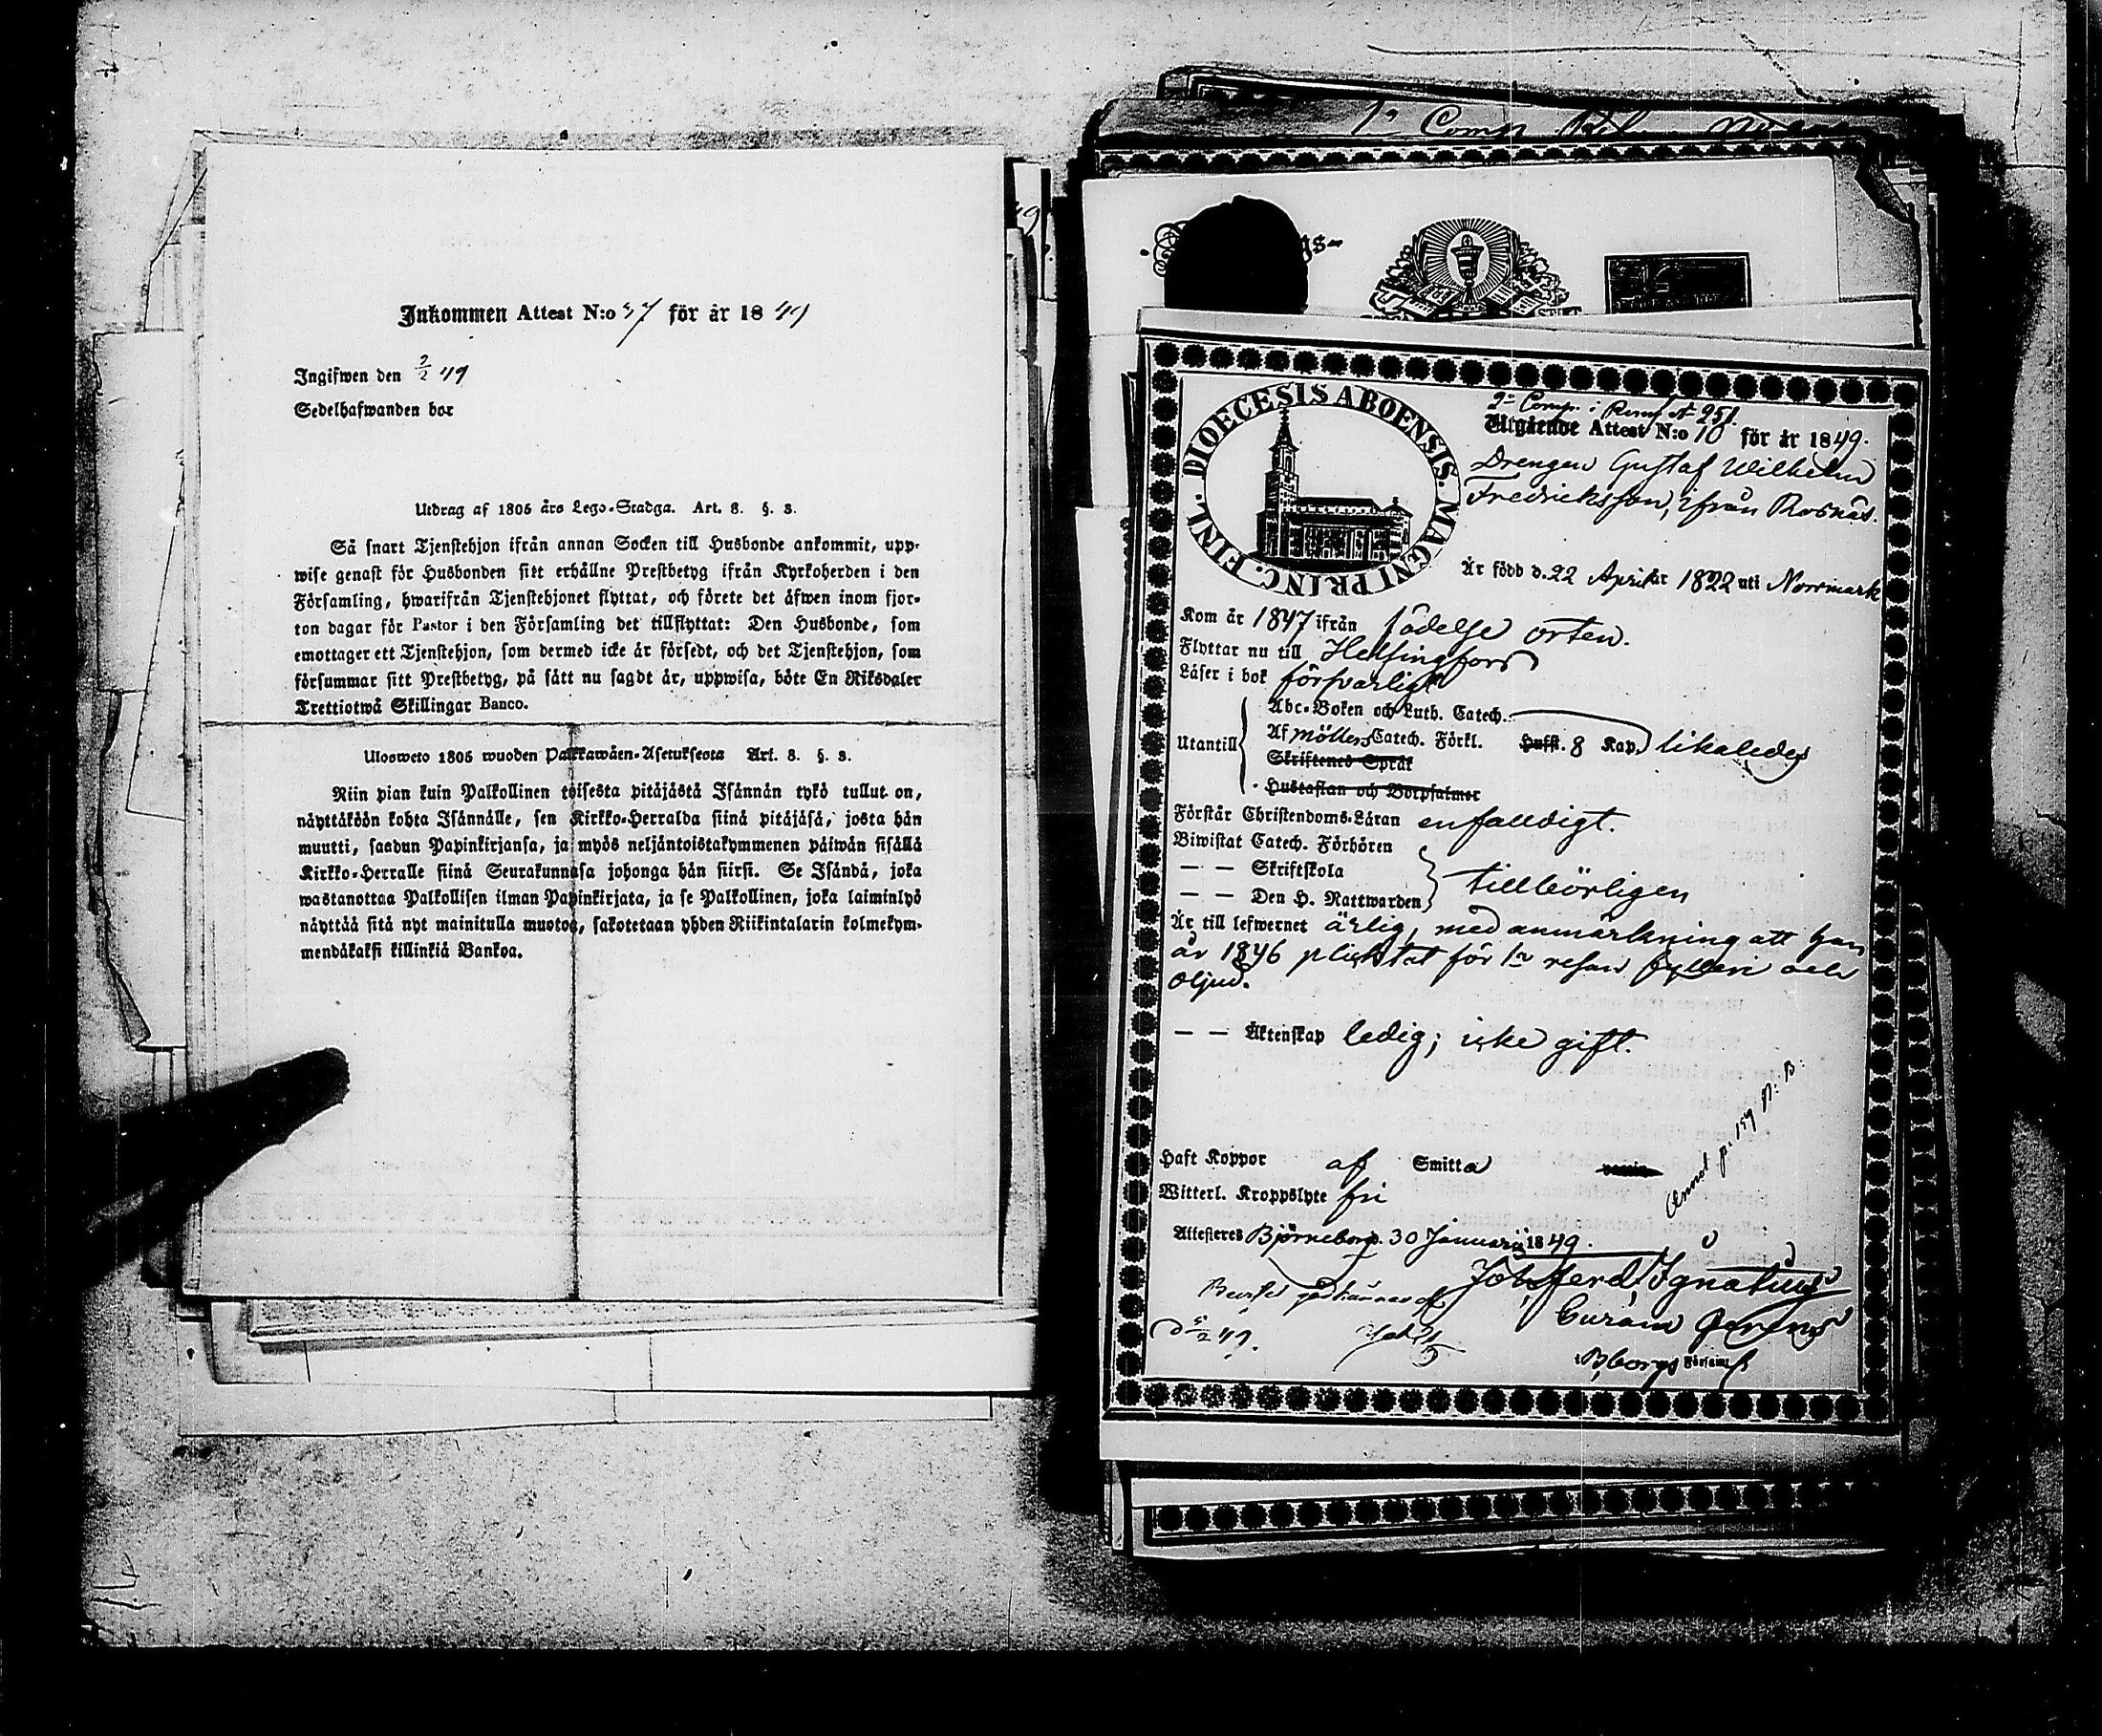 Inkommen Attest N:o 37 för år 1849
Ingifwen den 2/2 49
Sedelhafwanden bor
Utdrag af 1805 års Lego-Stadga. Art. 8. §. 3.
Så snart Tjenstehjon ifrån annan Socken till Husbonde ankommit, upp-
wise genast för Husbonden sitt erhållne Prestbetyg ifrån Kyrkoherden i den
Församling, hwarifrån Tjenstehjonet flyttat, och förete det äfwen inom fjor-
ton dagar för Pastor i den Församling det tillflyttat: Den Husbonde, som
emottager ett Tjenstehjon, som dermed icke är försedt, och det Tjenstehjon, som
försummar sitt Prestbetyg, på sätt nu sagdt är, uppwisa, böte En Riksdaler
Trettiotwå Skillingar Banco.
Ulosweto 1805 wuoden Palkkawäen-Asetuksesta Art. 8. §. 3.
Niin pian kuin Palkollinen toisesta pitäjästä Isännän tykö tullut on,
näyttäköön kohta Isännälle, sen Kirkko-Herralda siinä pitäjäsä, josta hän
muutti, saadun Papinkirjansa, ja myös neljäntoistakymmenen päiwän sisällä
Kirkko-Herralle siinä Seurakunnasa johonga hän siirsi. Se Isändä, joka
wastanottaa Palkollisen ilman Papinkirjata, ja se Palkollinen, joka laiminlyö
näyttää sitä nyt mainitulla muotoa, sakotetaan yhden Riikintalarin kolmekym-
mendäkaksi killinkiä Bankoa.
1a Comp
DIOECESIS ABOENSIS. MAGNI PRINC. FINL.
2a Comp. i Rulla N 251.
Utgående Attest N:o 10 för år 1849.
Drengen Gustaf Wilhelm
Fredriksson, ifrån Rosnäs.
Är född d. 22 April år 1822 uti Norrmark
Kom år 1847 ifrån födelse orten.
Flyttar nu till Helsingfors
Läser i bok försvarligt
Abc-Boken och Luth. Catech.
Utantill Af Möllers Catech. Förkl. Hufst. 8 Kap. likaledes
Skriftenes Språk
Hustaflan och Botpsalmer
Förstår Christendoms-Läran enfalldigt.
Biwistat Catech. Förhören
— — Skriftskola tillbörligen
— — Den H. Nattwarden
Är till lefwernet ärlig, med anmärkning att han
år 1846 pliktat för 1a resan fylleri och
oljud.
— — Äktenskap ledig; icke gift.
Haft Koppor af Smitta
Witterl. Kroppslyte fri
Annot p. 157 N: B:
Attesteras Björneborg d. 30 Januarii 1849.
Joh Ferd Ignatius
godkännes af
d 5/2 49.
i Bborgs Församl